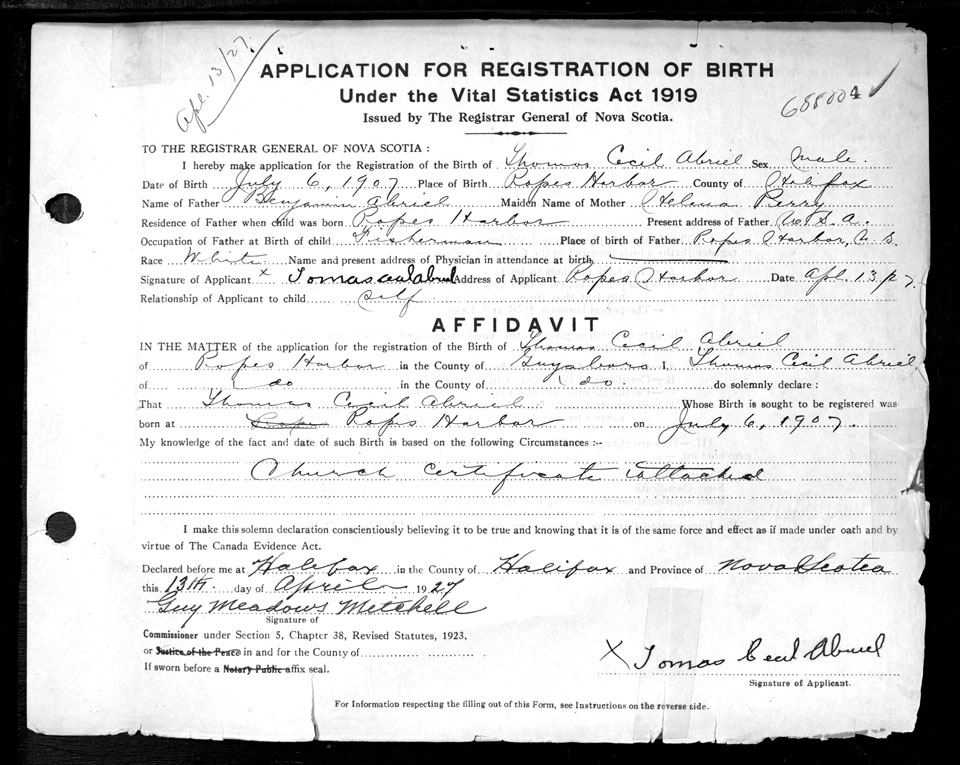 Apl. 13/27
APPLICATION FOR REGISTRATION OF BIRTH
Under the Vital Statistics Act 1919
Issued by The Registrar General of Nova Scotia.
4
TO THE REGISTRAR GENERAL OF NOVA SCOTIA :
I hereby make application for the Registration of the Birth of Thomas Cecil Abriel Sex Male.
Date of Birth July 6, 1907 Place of Birth Popes Harbor County of Halifax
Name of Father Benjamin Abriel Maiden Name of Mother Helena Perry
Residence of Father when child was born Popes Harbor Present address of Father U.S.A.
Occupation of Father at Birth of child Fisherman Place of birth of Father Popes Harbor, N.S.
Race White Name and present address of Physician in attendance at birth
Signature of Applicant x Tomas Address of Applicant Popes Harbor Date Apl. 13/27
Relationship of Applicant to child self
AFFIDAVIT
IN THE MATTER of the application for the registration of the Birth of Thomas Cecil Abriel
of Popes Harbor in the County of Guysboro I, Thomas Cecil Abriel
of do in the County of do. do solemnly declare :
That Thomas Cecil Abriel Whose Birth is sought to be registered was
born at Popes Harbor on July 6, 1907.
My knowledge of the fact and date of such Birth is based on the following Circumstances :--
Church Certificate attached
I make this solemn declaration conscientiously believing it to be true and knowing that it is of the same force and effect as if made under oath and by
virtue of The Canada Evidence Act.
Declared before me at Halifax in the County of Halifax and Province of Nova Scotia
this 13th day of April 1927
Guy Meadows Metchell
Signature of
Commissioner under Section 5, Chapter 38, Revised Statutes, 1923,
or Justice of the Peace in and for the County of
If sworn before a Notary Public affix seal.
X Tomas Cecil Abriel
Signature of Applicant.
For Information respecting the filling out of this Form, see Instructions on the reverse side.